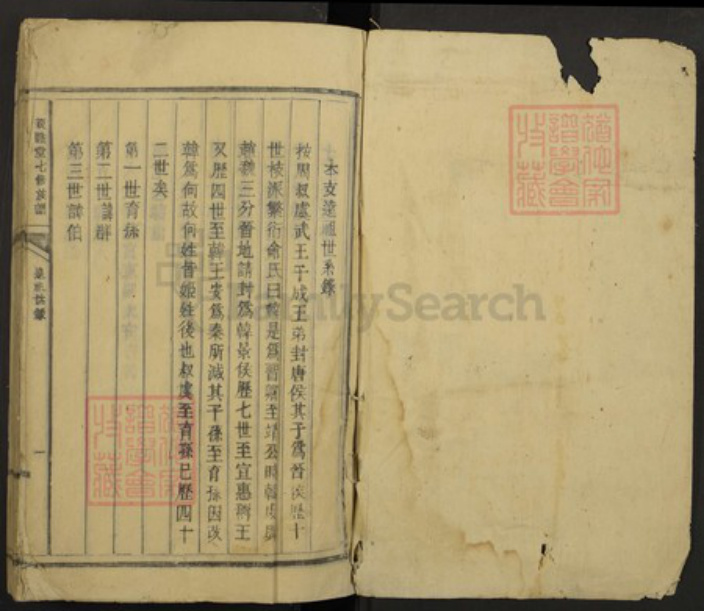 本支遠祖世系錄
按周叔虞武王子成王弟封唐侯其子為晉侯歷十
世枝派繁衍命氏曰韓是為晉卿至靖公時韓虔與
趙魏三分晉地請封為韓景侯歷七世至宣惠稱王
又歷四世至韓王安為秦所滅其子孫至育孫因改
韓為何故何姓皆姬姓後也叔虞至育孫已歷四十
二世矣
第一世育孫
第二世
第三世 伯
七修族譜
一
FamilySearch